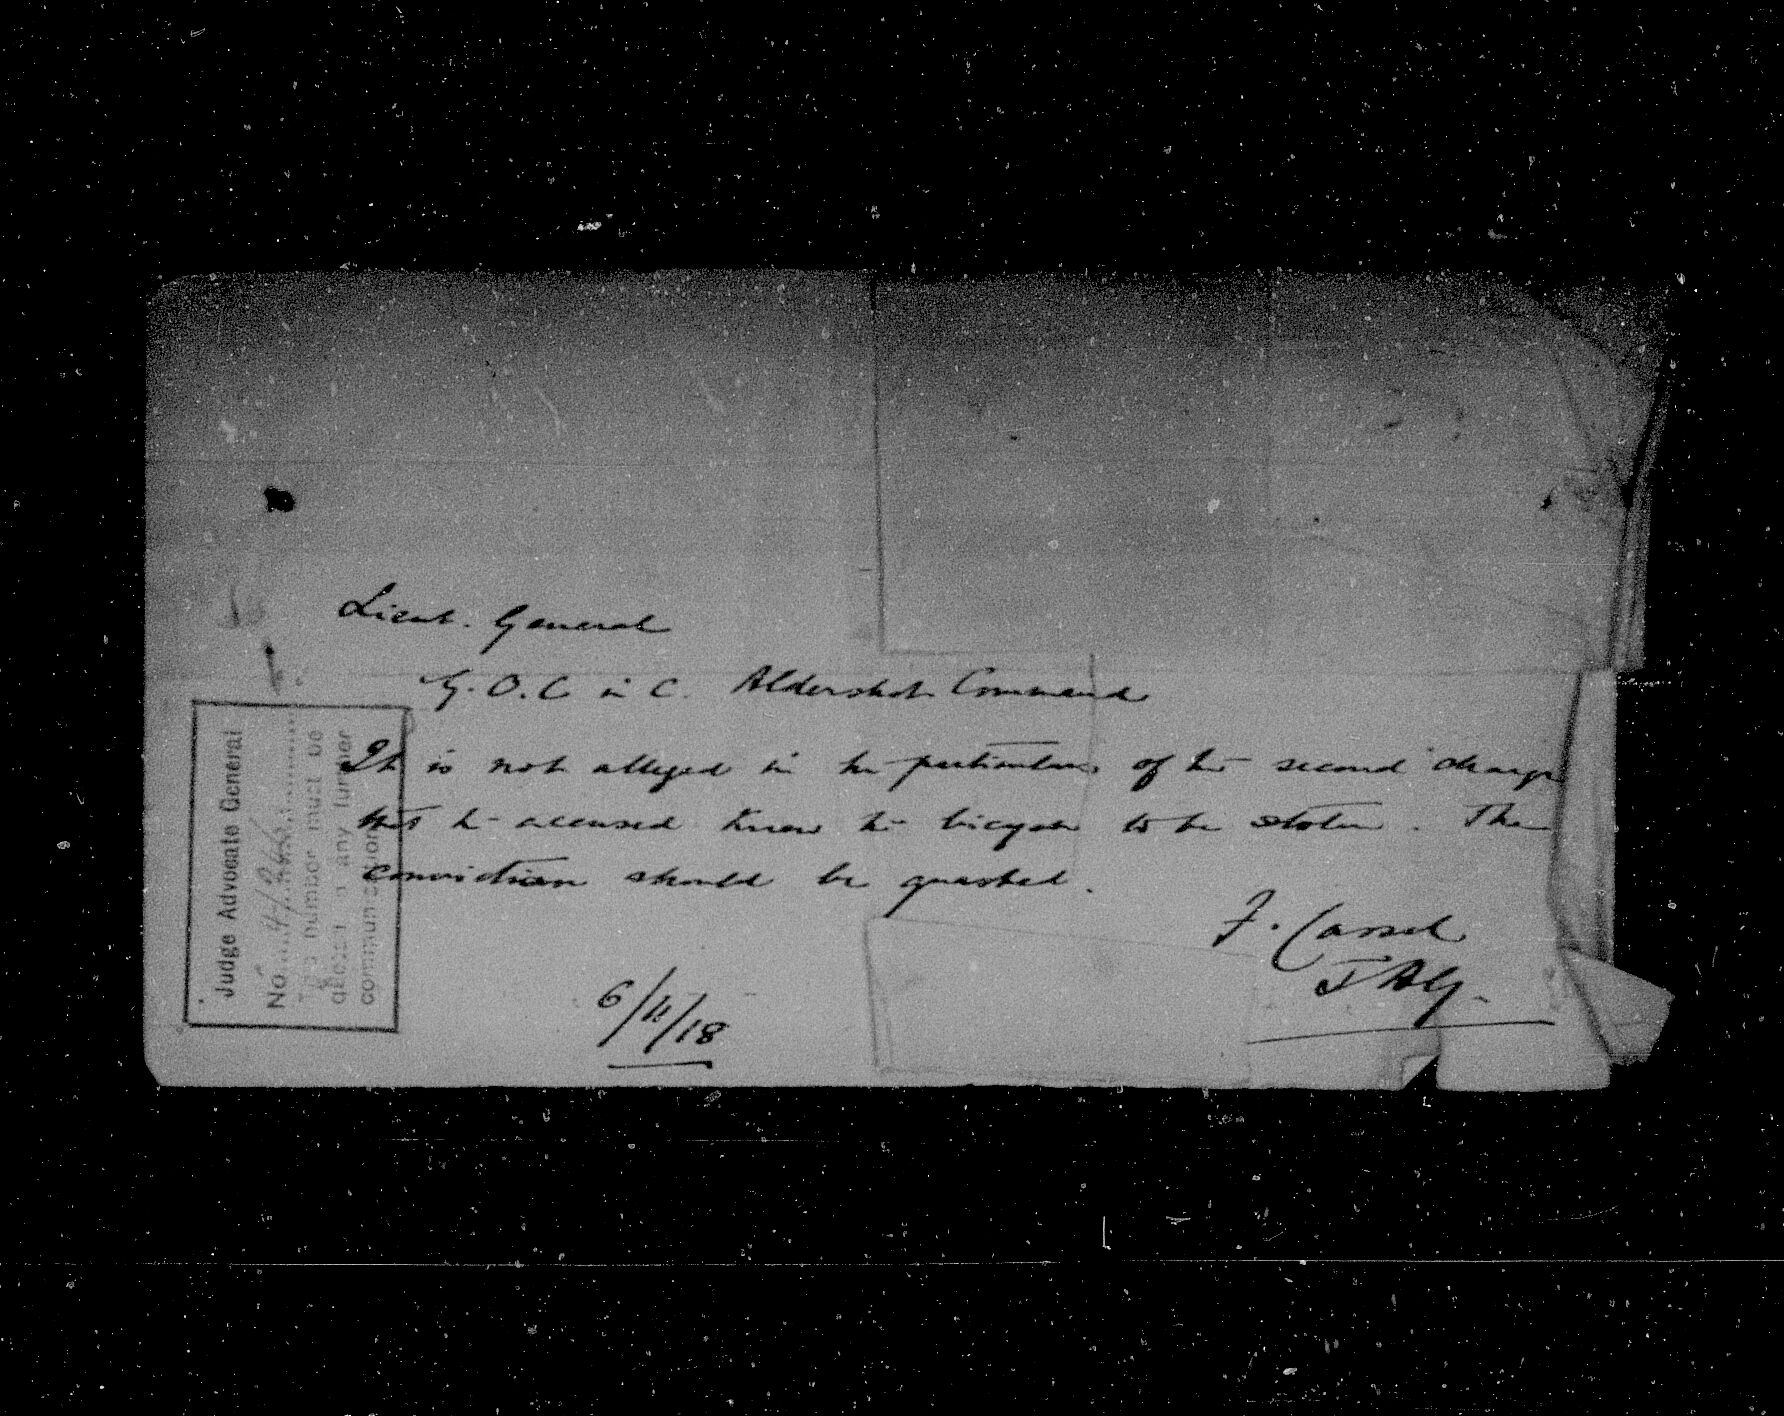 Lieut. General
G.O.C in C. Aldershot Command
It is not alleged in the particulars of the second charge
that the accused knew the bicycle to be stolen. The
conviction should be quashed.
F. Cassel
JAG.
6/11/18
Judge Advocate General
No
This number must be
quoted in any further
communication